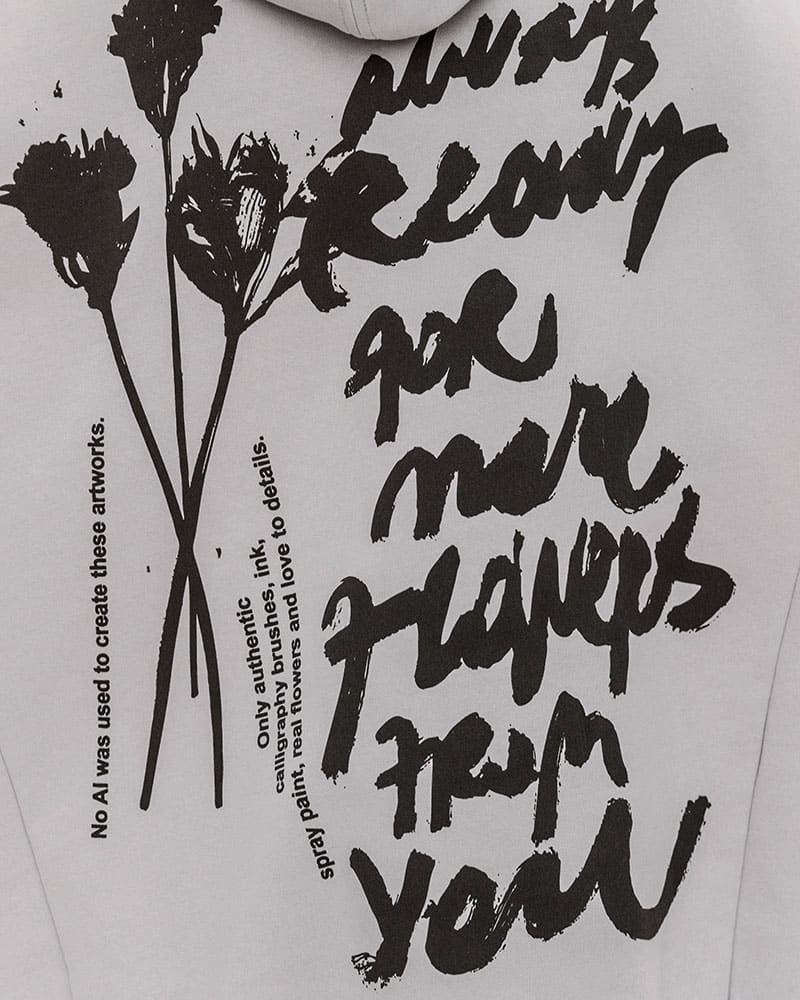 always
Ready
for
more
Flowers
From
you
No AI was used to create these artworks.
Only authentic
calligraphy brushes, ink,
spray paint, real flowers and love to details.